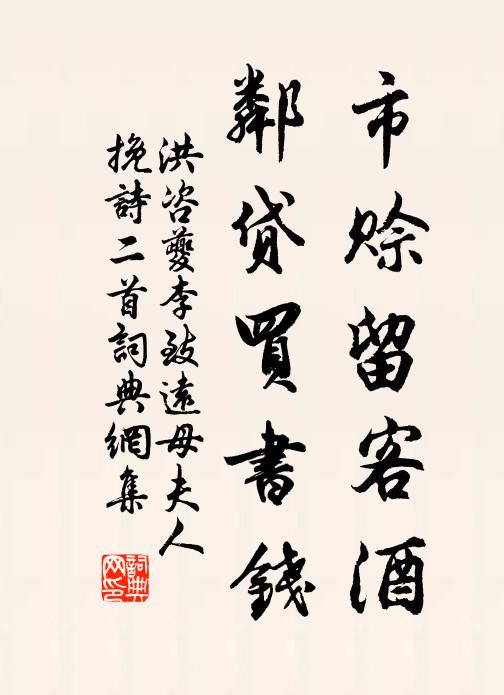 市賒留客酒
鄰貸買書錢
洪咨夔李致遠母夫人
挽詩二首詞典網集
詞典
网印